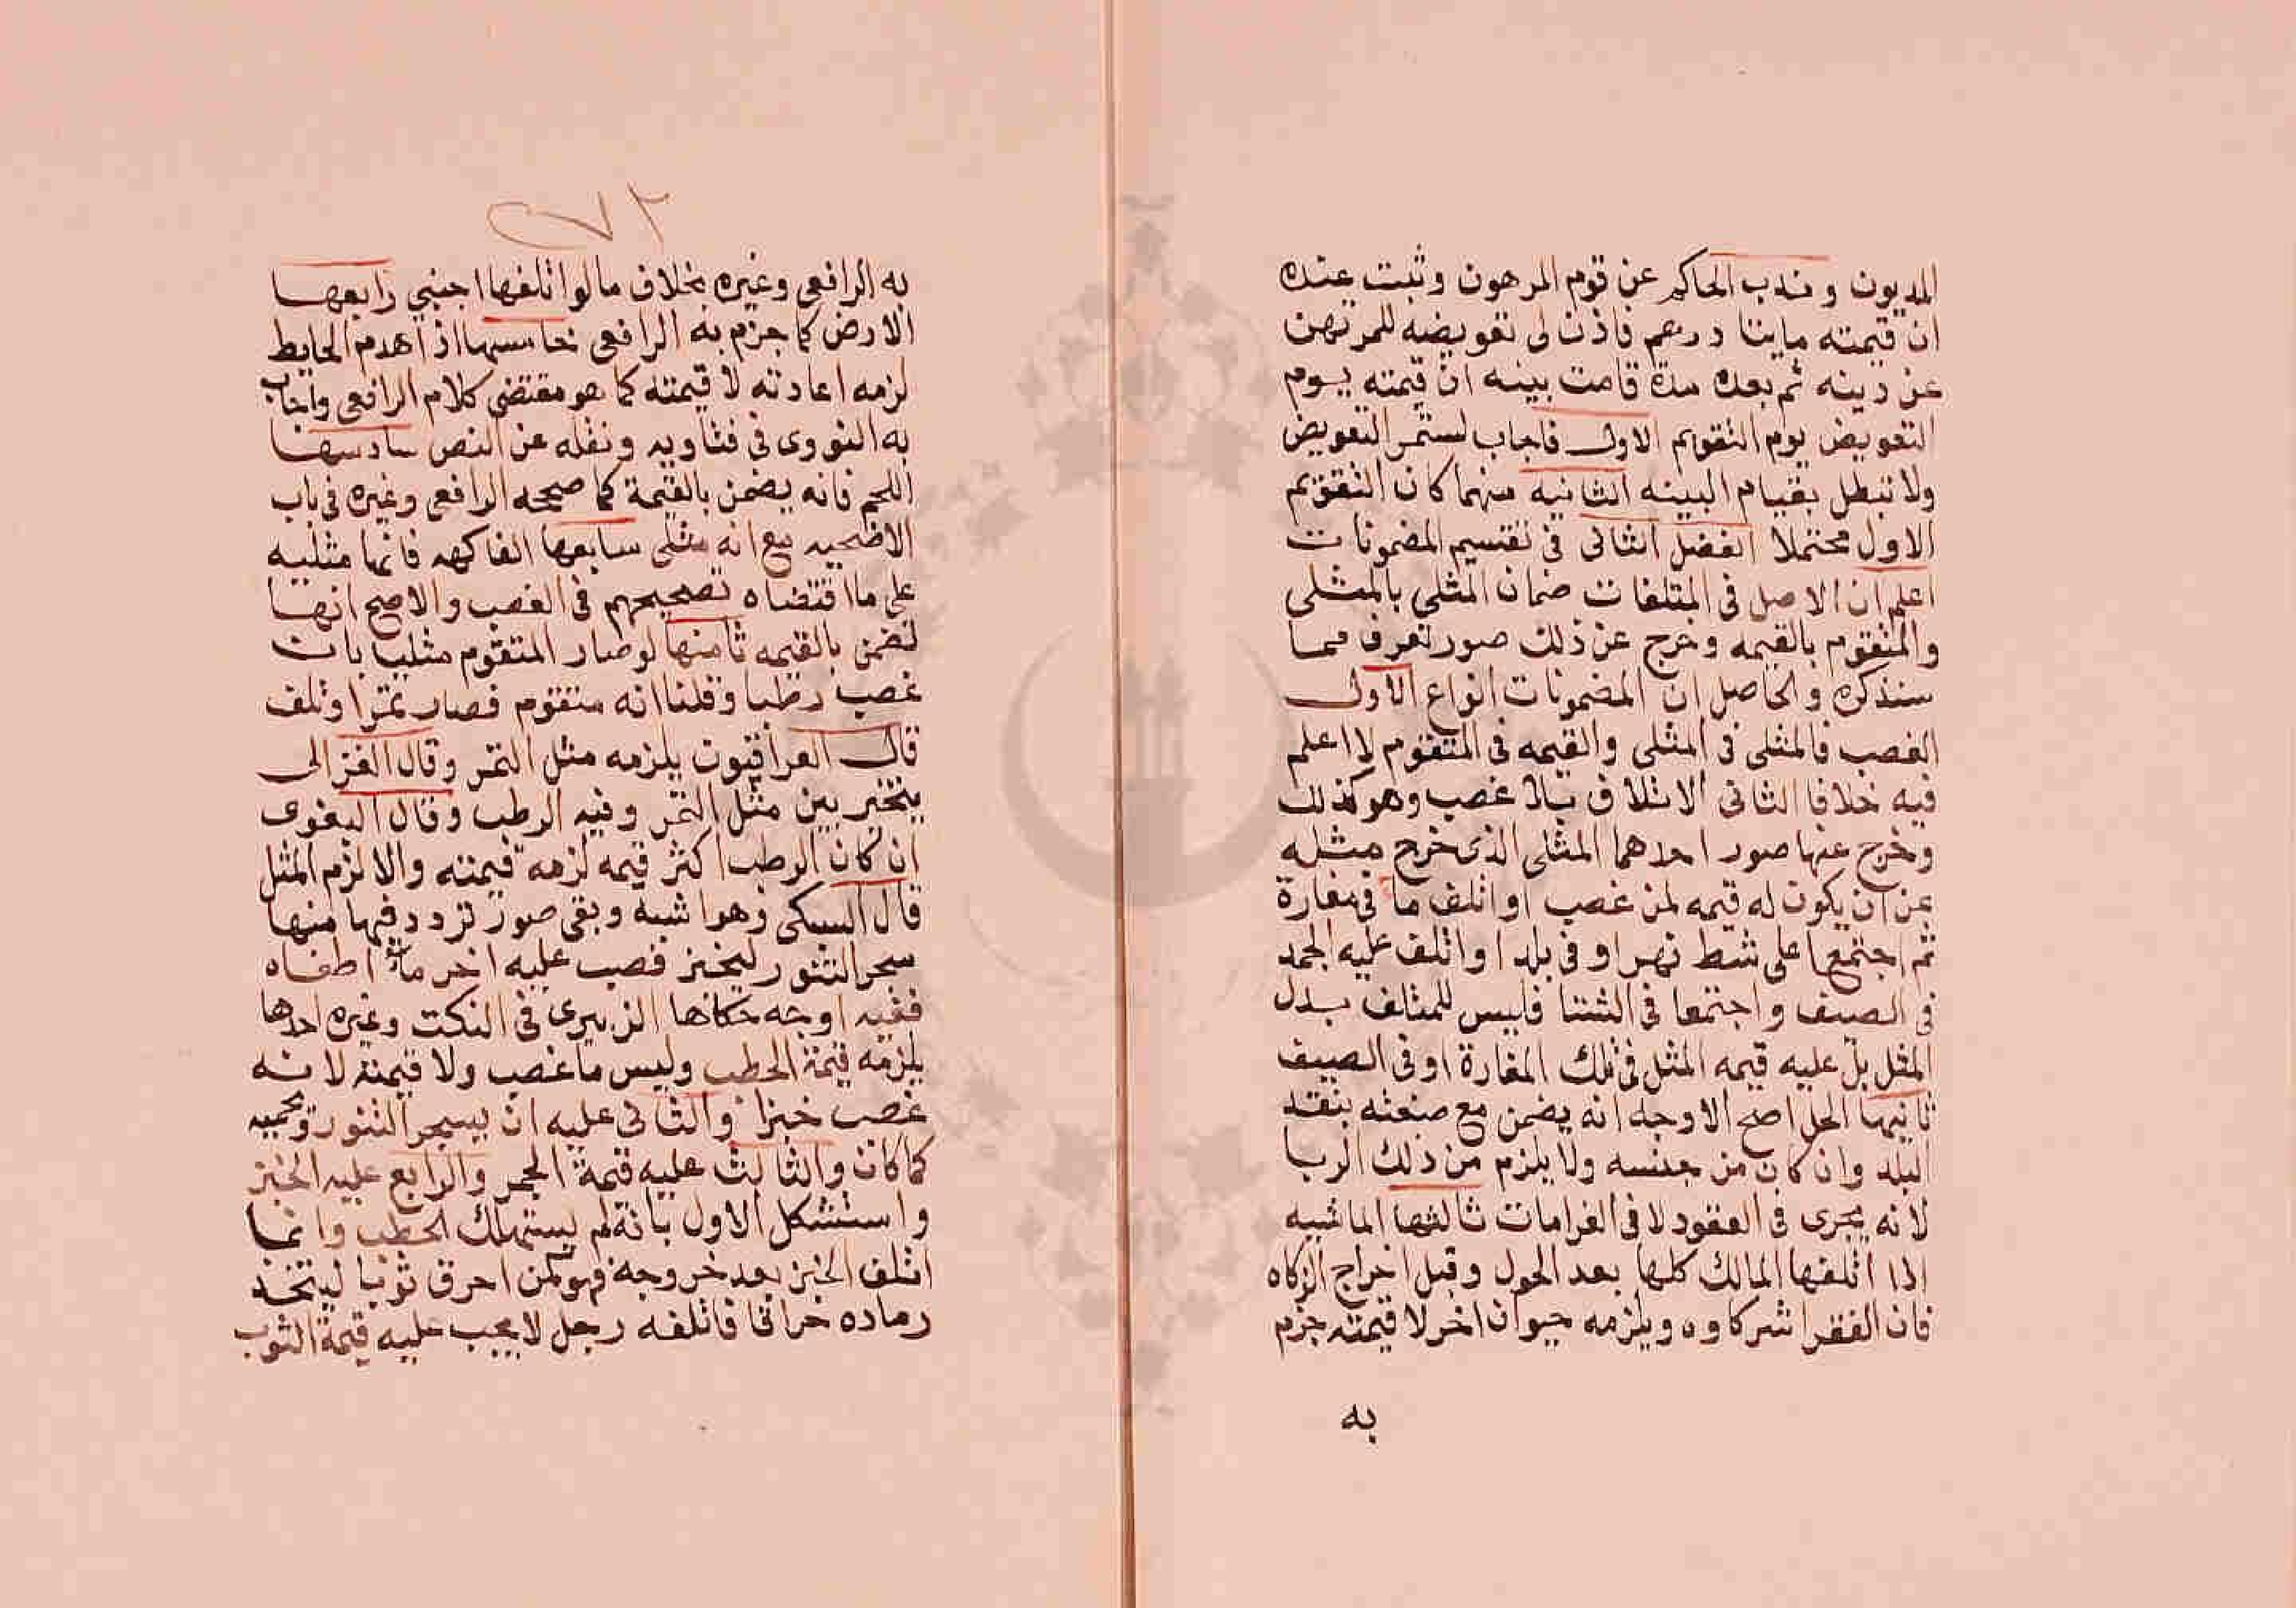 المديون وندب الحاكم عن قوم المرهون وثبت عنده
ان قيمته مايتا درهم فاذن لى تعويضه للمرتهن
عن دينه ثم بعد مدة قامت بينه ان قيمته يوم
التعويض يوم التقويم الاول فاجاب لستمر التعويض
ولا تبطل بقيام البينه الثانيه مهما كان التقويم
الاول محتملا الفصل الثانى فى تقسيم المضمونات
اعلم ان الاصل فى المتلفات ضمان المثلى بالمثلى
والمتقوم بالقيمه وخرج عن ذلك صور تعرف مما
سنذكره والحاصل ان المضمونات انواع الاول
الغصب فالمثلى فى المثلى والقيمه فى المتقوم لا اعلم
فيه خلافا الثانى الاتلاف بلا غصب وهو كذلك
وخرج عنها صور احدهما المثلى الذى خرج مثله
عن ان يكون له قيمه لمن غصب او اتلف ما فى مفازة
ثم اجتمعا على شط نهر او فى بلد او اتلف عليه الجمد
فى الصيف واجتمعا فى الشتا فليس للمتلف بدل
المثل بل عليه قيمه المثل فى تلك المفازة او فى الصيف
ثانيها الحلى اصح الاوجه انه يضمن مع صنعته بنقد
البلد وان كان من جنسه ولا يلزم من ذلك الربا
لانه يجرى فى العقود لا فى الغرامات ثالثها الماشيه
اذا اتلفها المالك كلها بعد الحول وقبل اخراج الزكاه
فان الفقرا شركاوه ويلزمه حيوان اخر لا قيمته جزم
به
٢٧٢
به الرافعى وغيره بخلاف ما لو اتلفها اجنبي رابعها
الارض كما جزم به الرافعى خامسها اذا هدم الحايط
لزمه اعادته لا قيمته كما هو مقتضى كلام الرافعى واجاب
به النووى فى فتاويه ونقله عن النص سادسها
اللحم فانه يضمن بالقيمة كما صححه الرافعى وغيره فى باب
الاضحيه مع انه مثلى سابعها الفاكهه فانها مثليه
على ما اقتضاه تصحيحهم فى الغصب والاصح انها
تضمن بالقيمه ثامنها لو صار المتقوم مثليا بان
غصب رطبا وقلنا انه متقوم فصار تمرا وتلف
قال العراقيون يلزمه مثل التمر وقال الغزالى
يتخير بين مثل التمر وقيمه الرطب وقال البغوى
ان كان الرطب اكثر قيمه لزمه قيمته والا لزم المثل
قال السبكى وهو اشبه وبقى صور تردد فيها منها
سجر التنور ليخبز فصب عليه اخر ما اطفاه
ففيه اوجه حكاها الزبيرى فى النكت وغيره احدها
يلزمه قيمة الحطب وليس ما غصب ولا قيمته لانه
غصب خبزا والثانى عليه ان يسجر التنور ويحميه
كما كان والثالث عليه قيمة الجمر والرابع عليه الخبز
واستشكل الاول بانه لم يستهلك الحطب وانما
اتلف الخبز بعد خروجه فهو كمن احرق ثوبا ليتخذ
رماده حراقا فاتلفه رجل لا يجب عليه قيمة الثوب